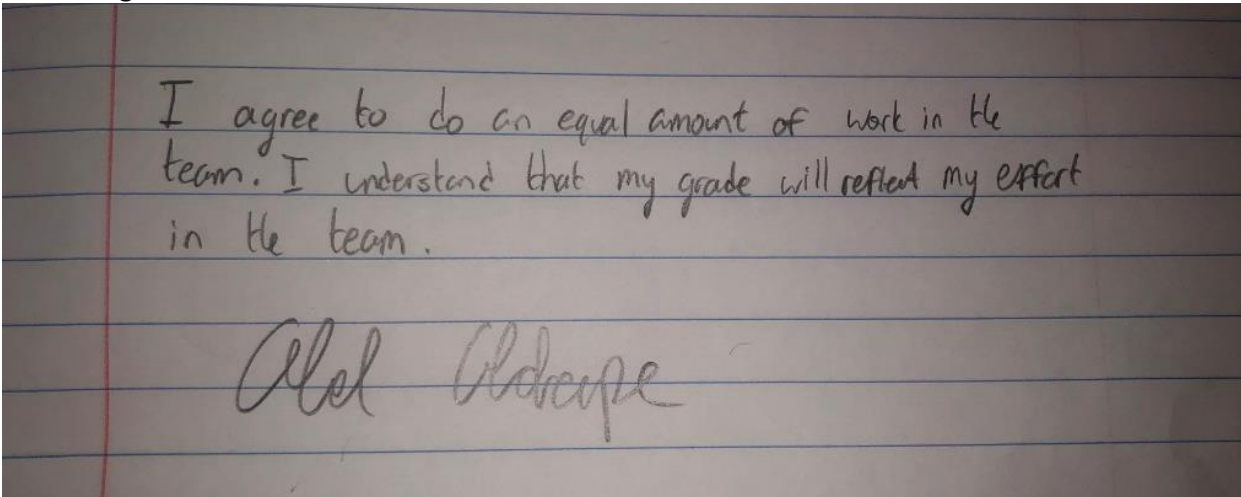 I agree to do an equal amount of work in the
team. I understand that my grade will reflect my effort
in the team.